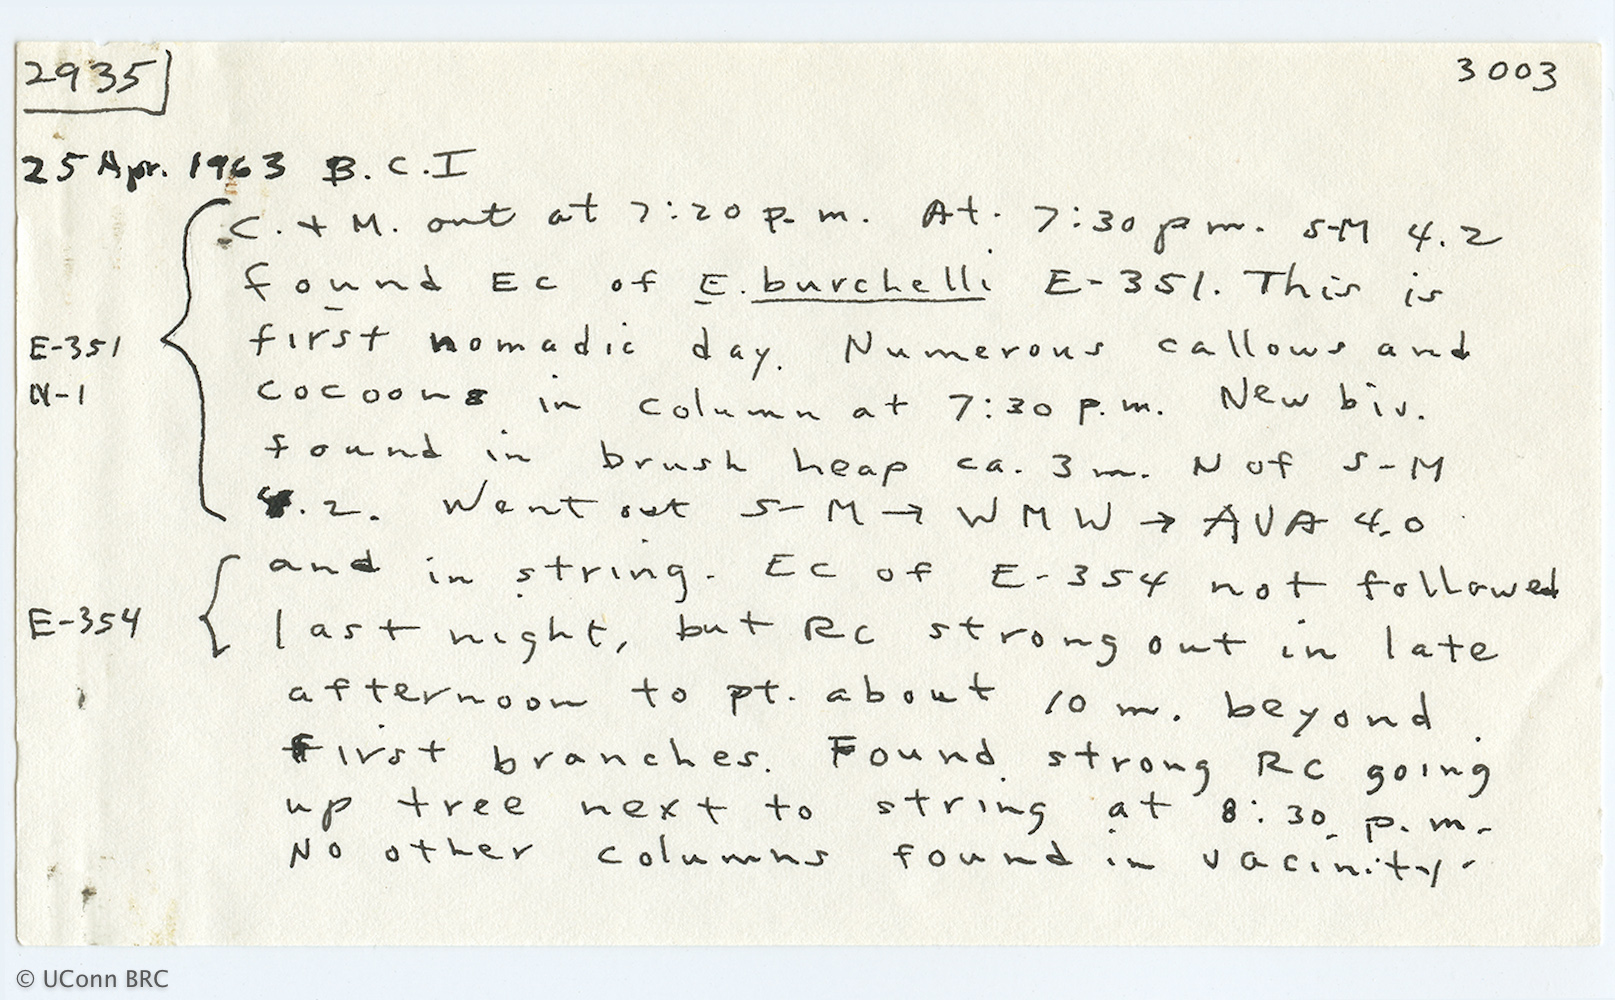 2935
3003
25 Apr. 1963 B.C.I
C. + M. out at 7:20 p.m. At. 7:30 p m. S-M 4.2
found Ec of E. burchelli E-351. This is
E-351
first nomadic day. Numerous callows and
N-1
cocoons in column at 7:30 p.m. New biv.
found in brush heap ca. 3 m. N of S-M
4.2. Went out S-M → WMW → AVA 4.0
and in string. Ec of E-354 not followed
E-354
last night, but RC strong out in late
afternoon to pt. about 10 m. beyond
first branches. Found strong RC going
up tree next to string at 8:30 p.m.
No other columns found in vacinity.
© UConn BRC